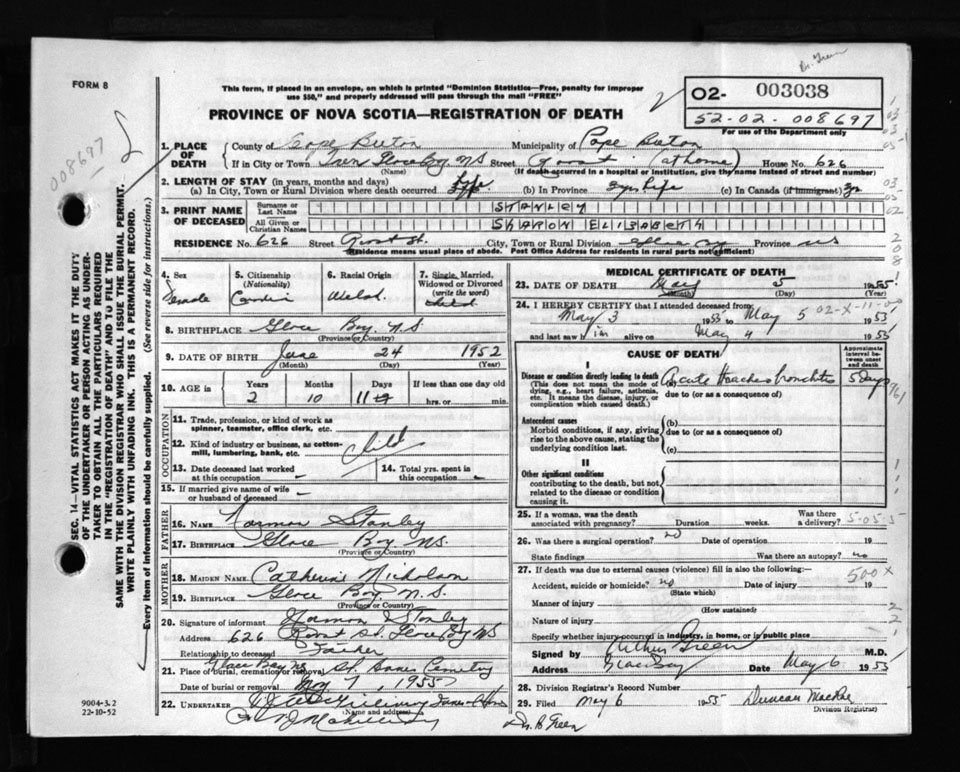 Dr. Green
FORM 8
This form, if placed in an envelope, on which is printed "Dominion Statistics—Free, penalty for improper
use $50," and properly addressed will pass through the mail "FREE"
PROVINCE OF NOVA SCOTIA—REGISTRATION OF DEATH
02- 003038
52-02-008697
For use of the Department only
008697
SEC. 14—VITAL STATISTICS ACT MAKES IT THE DUTY
OF THE UNDERTAKER OR PERSON ACTING AS UNDER-
TAKER TO OBTAIN ALL THE PARTICULARS REQUIRED
IN THE "REGISTRATION OF DEATH" AND TO FILE THE
SAME WITH THE DIVISION REGISTRAR WHO SHALL ISSUE THE BURIAL PERMIT.
WRITE PLAINLY WITH UNFADING INK. THIS IS A PERMANENT RECORD.
Every item of information should be carefully supplied. (See reverse side for instructions.)
1. PLACE OF DEATH
County of Cape Breton Municipality of Cape Breton
If in City or Town Glace Bay NS Street (at home) House No. 626
(Name) (If death occurred in a hospital or institution, give the name instead of street and number)
2. LENGTH OF STAY (in years, months and days)
(a) In City, Town or Rural Division where death occurred life (b) In Province life (c) In Canada (if immigrant)
3. PRINT NAME OF DECEASED
Surname or Last Name STANLEY
All Given or Christian Names SHARON ELIZABETH
RESIDENCE No. 626 Street St. City, Town or Rural Division Glace Bay Province NS
(Residence means usual place of abode. Post Office Address for residents in rural parts not sufficient)
4. Sex Female
5. Citizenship (Nationality)
6. Racial Origin Welsh
7. Single, Married, Widowed or Divorced (write the word) child
8. BIRTHPLACE Glace Bay, N.S.
(Province or Country)
9. DATE OF BIRTH June 24 1952
(Month) (Day) (Year)
10. AGE in Years Months Days If less than one day old
2 10 11 hrs. or min.
OCCUPATION
11. Trade, profession, or kind of work as
spinner, teamster, office clerk, etc.
12. Kind of industry or business, as cotton-
mill, lumbering, bank, etc.
Child
13. Date deceased last worked
at this occupation -
14. Total yrs. spent in
this occupation -
15. If married give name of wife
or husband of deceased -
FATHER
16. NAME Norman Stanley
17. BIRTHPLACE Glace Bay NS.
(Province or Country)
MOTHER
18. MAIDEN NAME Catherine Nicholson
19. BIRTHPLACE Glace Bay N.S.
(Province or Country)
20. Signature of informant Norman Stanley
Address 626 St. Glace Bay NS
Relationship to deceased Father
21. Place of burial, cremation or removal Glace Bay NS Cemetery
Date of burial or removal May 7, 1955
22. UNDERTAKER
(Name and address)
9004-3.2
22-10-52
MEDICAL CERTIFICATE OF DEATH
23. DATE OF DEATH May 5 1955
(Month) (Day) (Year)
24. I HEREBY CERTIFY that I attended deceased from
May 3 1955 to May 5 1955
02-X-11-00
and last saw him alive on May 4 1955
CAUSE OF DEATH
Approximate interval between onset and death
I
Disease or condition directly leading to death
(This does not mean the mode of
dying, e.g., heart failure, asthenia,
etc. It means the disease, injury, or
complication which caused death.)
(a) Acute Tracheo bronchitis 5 Days
due to (or as a consequence of)
Antecedent causes
Morbid conditions, if any, giving
rise to the above cause, stating the
underlying condition last.
(b)
due to (or as a consequence of)
(c)
II
Other significant conditions
contributing to the death, but not
related to the disease or condition
causing it.
25. If a woman, was the death
associated with pregnancy? Duration weeks. Was there a delivery?
5-05-5
26. Was there a surgical operation? no Date of operation 19
State findings Was there an autopsy? no
27. If death was due to external causes (violence) fill in also the following:
500X
Accident, suicide or homicide? no Date of injury 19
(State which)
Manner of injury
(How sustained)
Nature of injury
Specify whether injury occurred in industry, in home, or in public place
Signed by Arthur Green M.D.
Address Glace Bay Date May 6 1955
28. Division Registrar's Record Number
29. Filed May 6 1955 Duncan MacRae
Division Registrar)
Dr. A Green